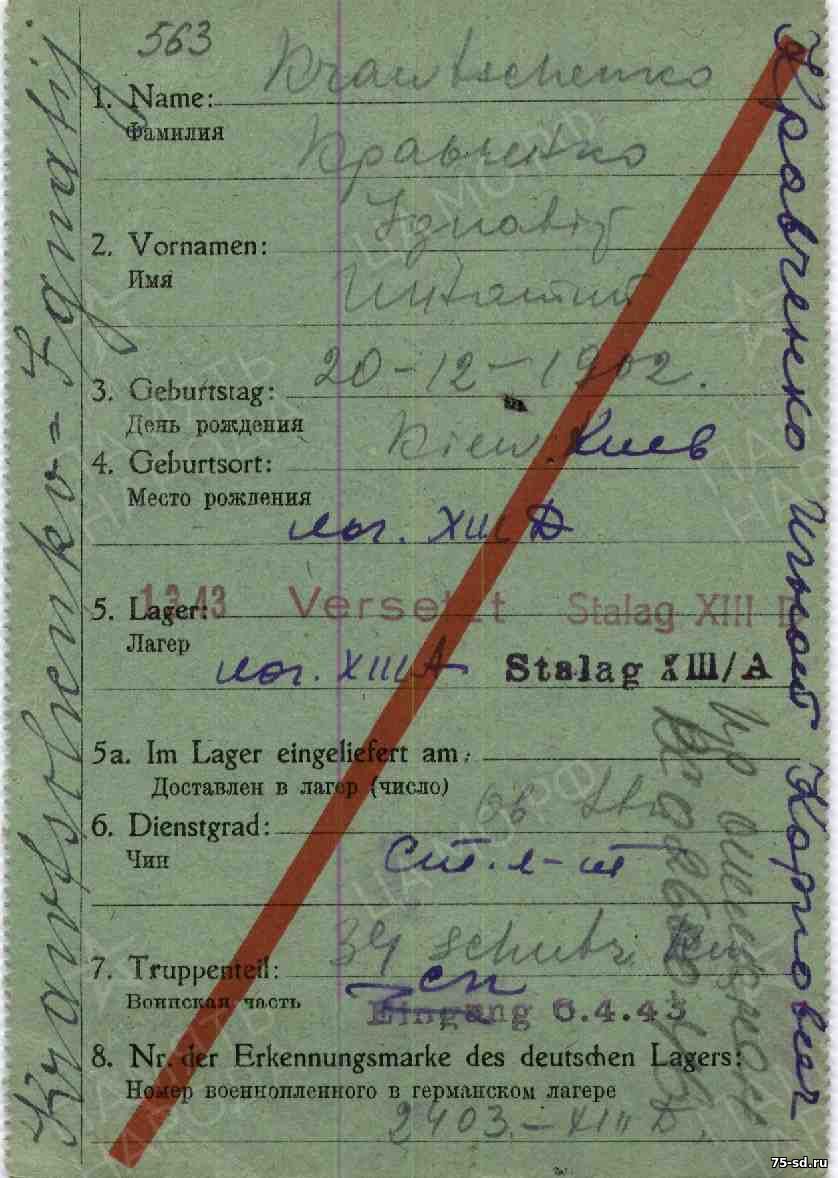 563
Krawtschenko
1. Name:
Фамилия
Кравченко
Ignatij
2. Vornamen:
Имя
20-12-1902.
3. Geburtstag:
День рождения
Kiew. Киев
4. Geburtsort:
Место рождения
лаг. XIII D
1.3.43 Versetzt Stalag XIII D
5. Lager:
Лагер
лаг. XIII A Stalag XIII/A
5a. Im Lager eingeliefert am:
Доставлен в лагер (число)
6. Dienstgrad:
Чин
ст. л-т
7. Truppenteil: 34 schutz
Воинская часть
Eingang 6.4.43
8. Nr. der Erkennungsmarke des deutschen Lagers:
Номер военнопленного в германском лагере
2403.-XIII D.
Krawtschenko = Ignatij
Кравченко Игнат Карпович
75-sd.ru